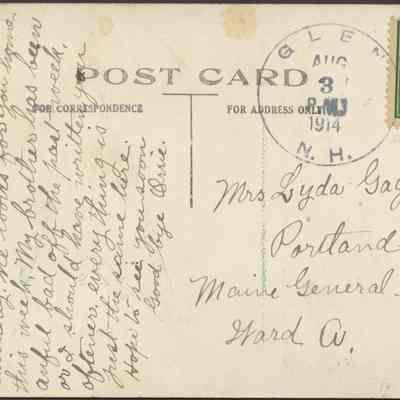 POST CARD
FOR CORRESPONDENCE
FOR ADDRESS ONLY
GLEN
AUG
3
P.M.
1914
N. H.
we looks for you home
this week. My brother has been
awful bad off the past week,
or I should have written you
oftener, everything is
just the same here.
Hope to see you soon
Good bye Orrie.
Mrs Lyda
Portland
Maine General
Ward A.